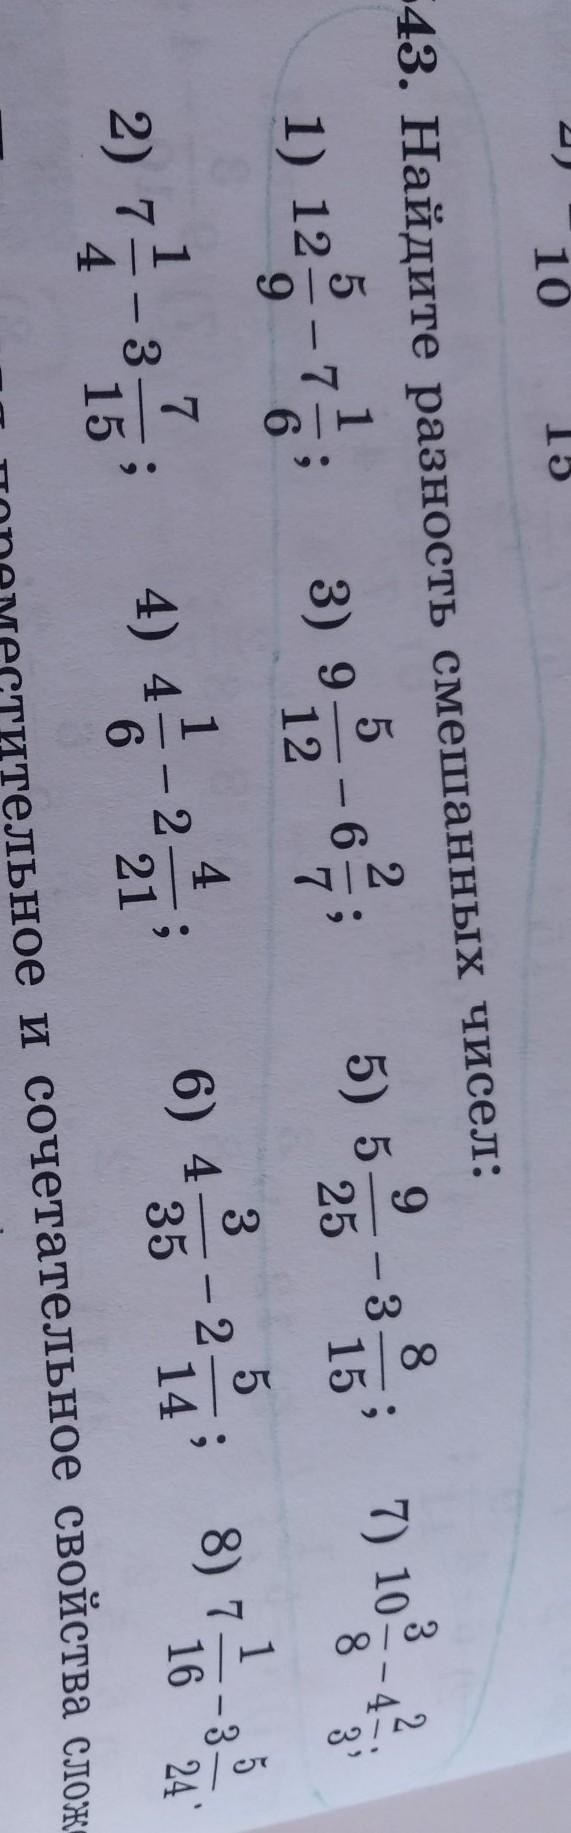 2) 10 15
43. Найдите разность смешанных чисел:
1) 12 5/9 − 7 1/6; 3) 9 5/12 − 6 2/7; 5) 5 9/25 − 3 8/15; 7) 10 3/8 − 4 2/3;
2) 7 1/4 − 3 7/15; 4) 4 1/6 − 2 4/21; 6) 4 3/35 − 2 5/14; 8) 7 1/16 − 3 5/24.
переместительное и сочетательное свойства слож